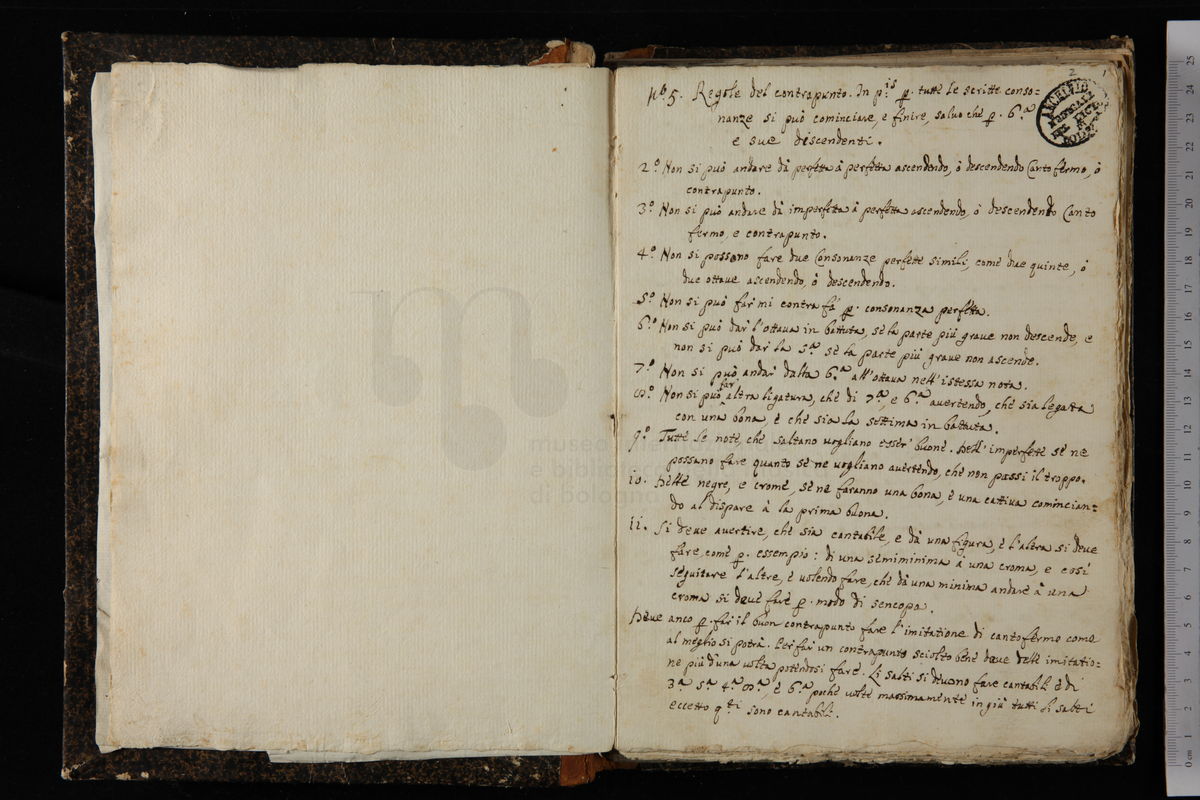 2 1
n.º 5. Regole del contrapunto. In p.is p. tutte le scritte conso=
nanze si può cominciare, e finire, salvo che p. 6.a
e sue discendenti.
2.º Non si può andare dà perfetta à perfetta ascendendo, ò descendendo Canto fermo, ò
contrapunto.
3.º Non si può andare dà imperfetta à perfetta ascendendo, ò descendendo Canto
fermo, e contrapunto.
4.º Non si possono fare due Consonanze perfette simili, come due quinte, ò
due ottave ascendendo, ò descendendo.
5.º Non si può far mi contra fà p. consonanza perfetta.
6.º Non si può dar l'ottava in battuta, se la parte più grave non descende, e
non si può dar la 5.a se la parte più grave non ascende.
7.º Non si può andar dalla 6.a all'ottava nell'istessa nota.
8.º Non si può far altra ligatura, che di 7.a, e 6.a avertendo, che sia legata
con una bona, e che sia la settima in battuta.
9.º Tutte le note, che saltano vogliano esser' buone. Dell' imperfette se ne
possano fare quanto se ne vogliano avertendo, che non passi il troppo.
10. Delle negre, e crome, se ne faranno una bona, e una cattiva comincian=
do al dispare à la prima buona.
11. Si deve avertire, che sia cantabile, e dà una figura, e l'altra si deve
fare, come p. essempio: di una semiminima à una croma, e così
seguitare l'altre, e volendo fare, che dà una minima andare à una
croma si deve fare p. modo di sencopa.
Deve anco p. far il buon contrapunto fare l'imitatione di canto fermo come
al meglio si potrà. Per far un contrapunto sciolto bene deve delle imitatio=
ne più d'una volta potendosi fare. Li salti si devono fare cantabili è di
3.a 5.a 4.a 8.a e 6.a poche volte massimamente in giù tutti li salti
eccetto q.ti sono cantabili.